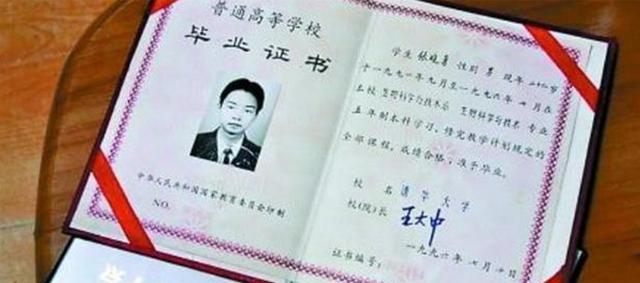 普通高等学校
毕业证书
中华人民共和国国家教育委员会印制
NO.
学生 张晓勇 性别 男 现年 二十三岁
于一九九一年九月至一九九六年七月在
本校 生物科学与技术系 生物科学与技术 专业
五年制本科学习,修完教学计划规定的
全部课程,成绩合格,准予毕业。
校 名 清华大学
校(院)长 王大中
一九九六年七月 日
证书编号: